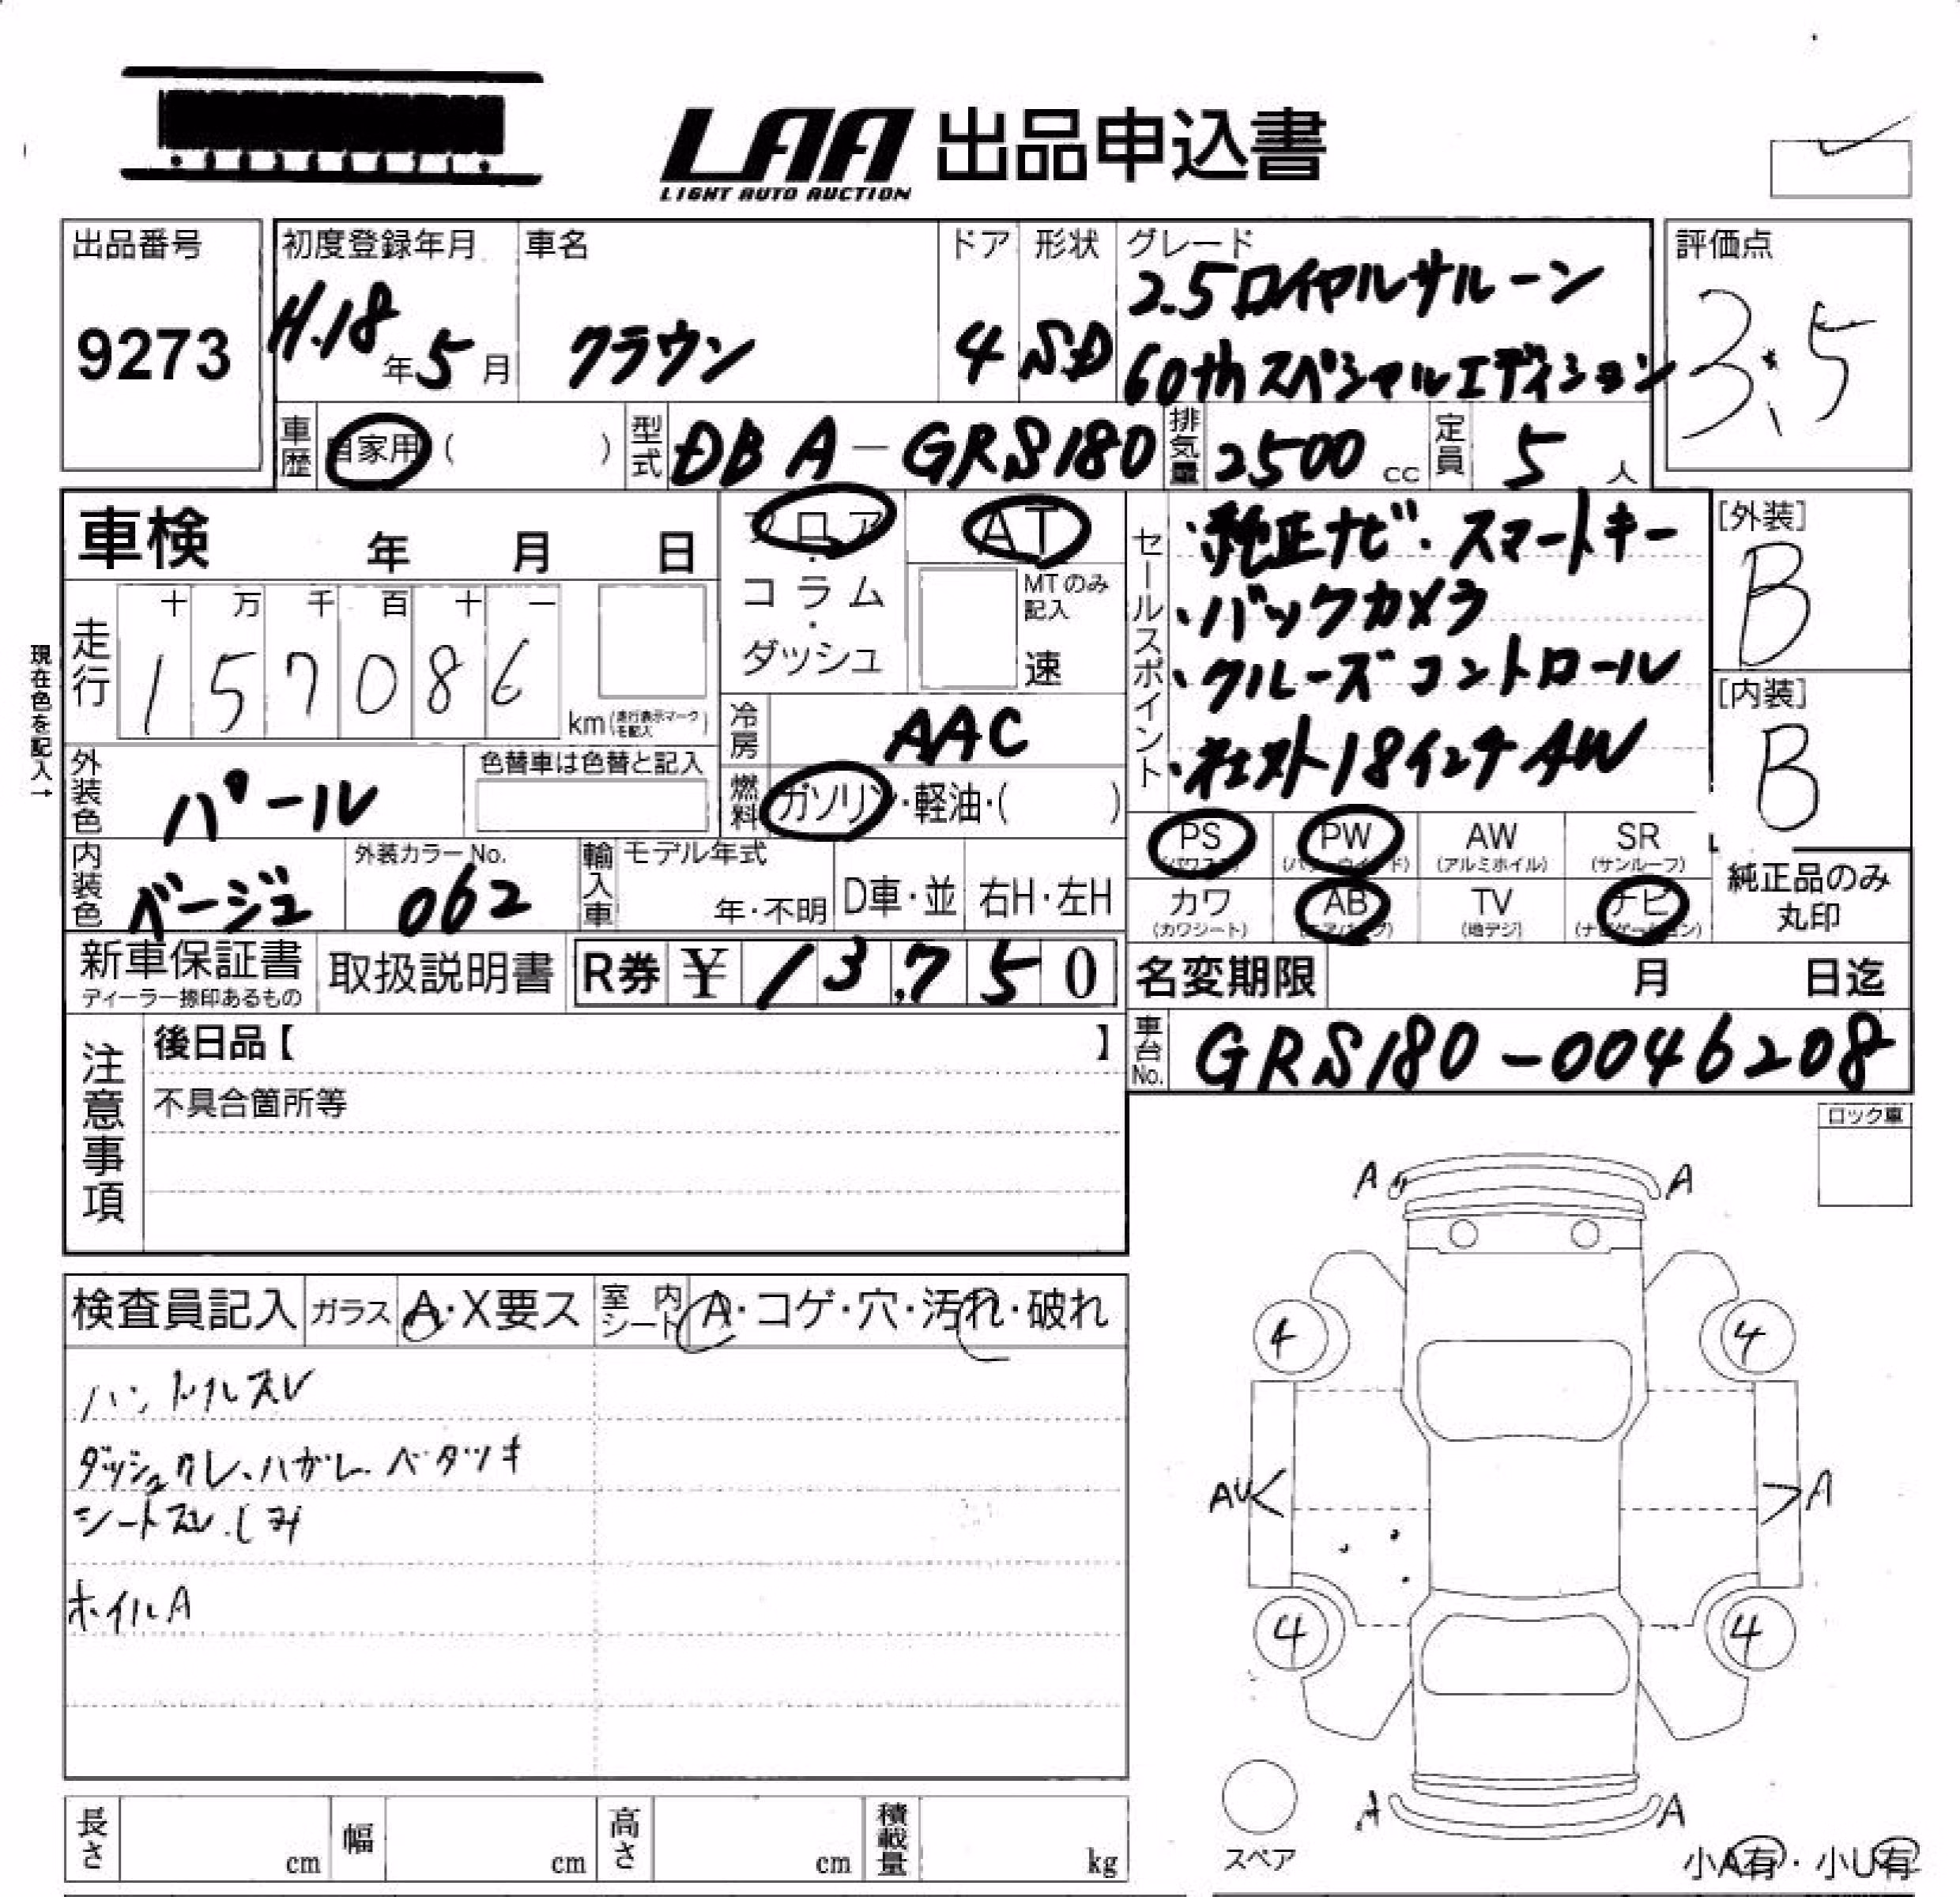 LAA 出品申込書
LIGHT AUTO AUCTION
出品番号
9273
初度登録年月
H.18年5月
車名
クラウン
ドア
4
形状
SD
グレード
2.5ロイヤルサルーン
60thスペシャルエディション
評価点
3.5
車歴 自家用 ( )
型式 DBA-GRS180
排気量 2500 cc
定員 5 人
車検 年 月 日
フロア・コラム・ダッシュ
AT
MTのみ記入
速
現在色を記入→
走行
十 万 千 百 十 一
1 5 7 0 8 6
km(走行表示マークを記入)
冷房 AAC
燃料 ガソリン・軽油・( )
外装色 パール
色替車は色替と記入
内装色 ベージュ
外装カラーNo.
062
輸入車
モデル年式
年・不明
D車・並
右H・左H
セールスポイント
・純正ナビ・スマートキー
・バックカメラ
・クルーズコントロール
・社外18インチAW
[外装]
B
[内装]
B
PS (パワステ)
PW (パワーウインド)
AW (アルミホイル)
SR (サンルーフ)
カワ (カワシート)
AB (エアバッグ)
TV (地デジ)
ナビ (ナビゲーション)
純正品のみ
丸印
新車保証書
ディーラー捺印あるもの
取扱説明書
R券 ¥ 13,750
名変期限 月 日迄
車台No. GRS180-0046208
注意事項
後日品【 】
不具合箇所等
ロック車
検査員記入
ガラス A・X要ス
室内シート A・コゲ・穴・汚れ・破れ
ハンドルスレ
ダッシュワレ、ハガレ、ベタツキ
シートスレ、シミ
ホイルA
A A
4 4
AU A
4 4
A A
スペア
小A有・小U有
長さ cm
幅 cm
高さ cm
積載量 kg